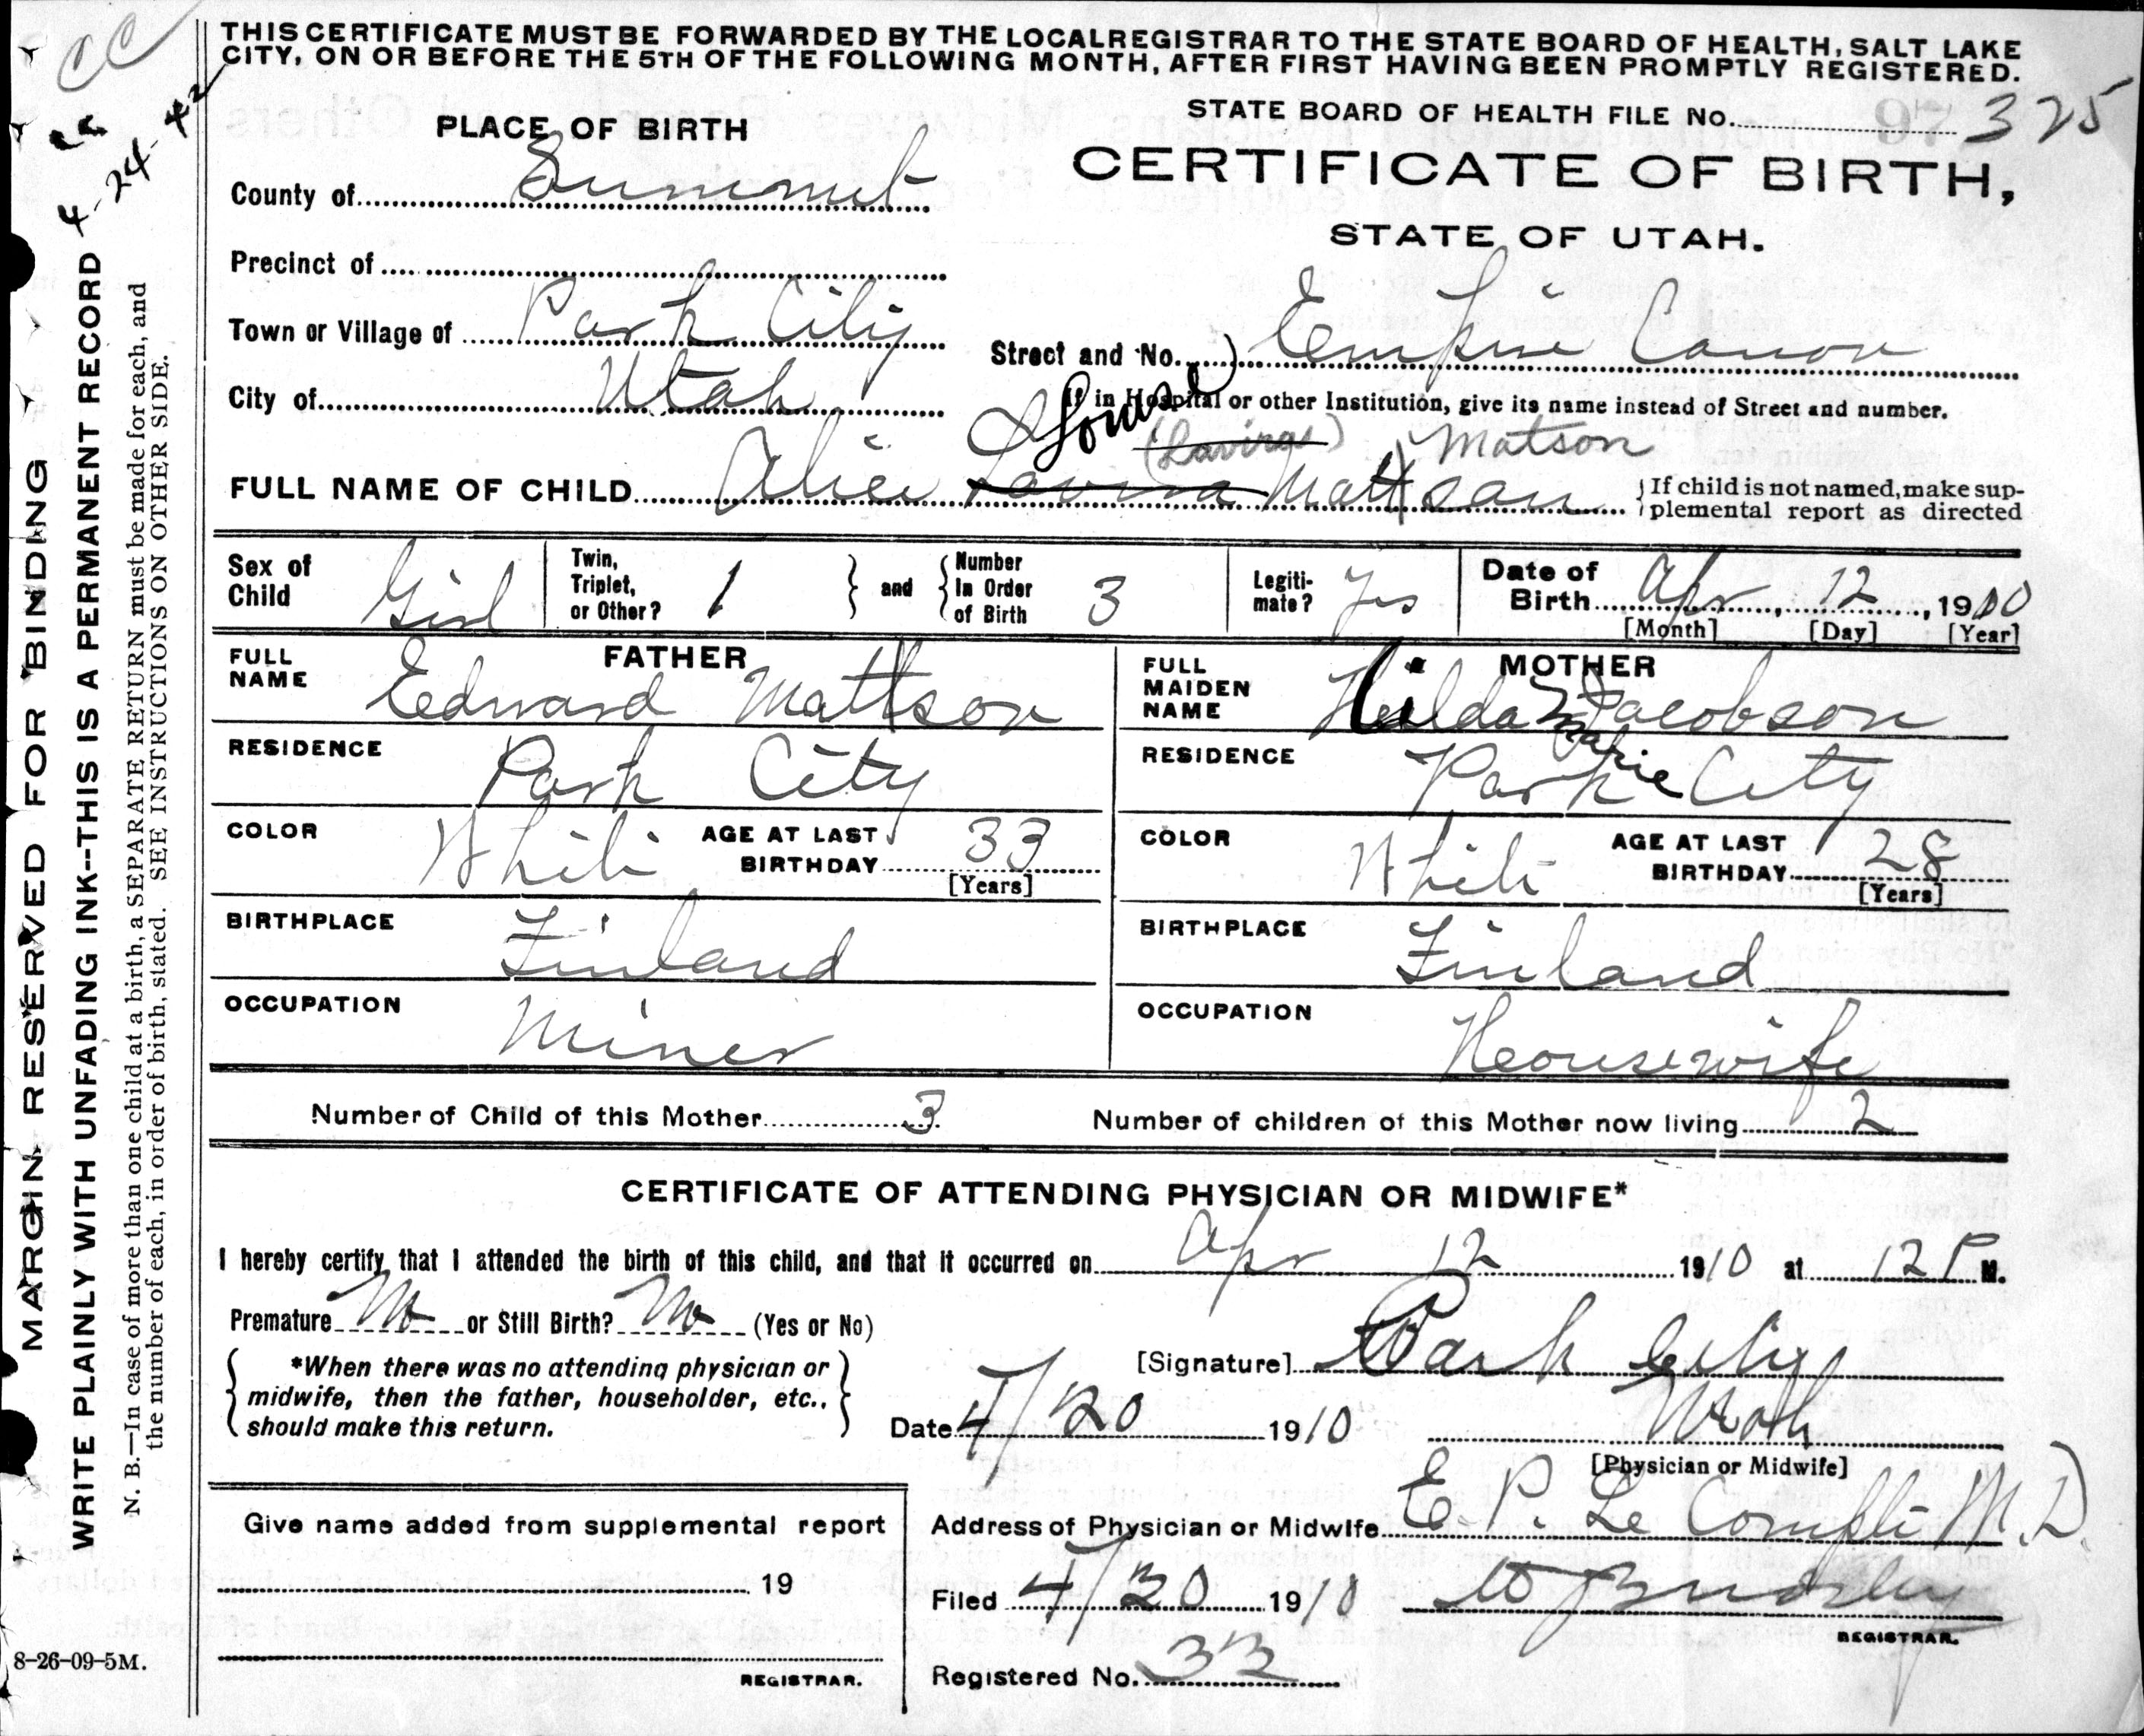 THIS CERTIFICATE MUST BE FORWARDED BY THE LOCAL REGISTRAR TO THE STATE BOARD OF HEALTH, SALT LAKE
CITY, ON OR BEFORE THE 5TH OF THE FOLLOWING MONTH, AFTER FIRST HAVING BEEN PROMPTLY REGISTERED.
CC
4-24-42
MARGIN RESERVED FOR BINDING
WRITE PLAINLY WITH UNFADING INK--THIS IS A PERMANENT RECORD
N. B.—In case of more than one child at a birth, a SEPARATE RETURN must be made for each, and
the number of each, in order of birth, stated. SEE INSTRUCTIONS ON OTHER SIDE.
PLACE OF BIRTH
STATE BOARD OF HEALTH FILE No. 325
County of Summit
CERTIFICATE OF BIRTH,
STATE OF UTAH.
Precinct of
Town or Village of Park City
Street and No. Empire Canon
City of Utah
If in Hospital or other Institution, give its name instead of Street and number.
Louise
(Lavina) Matson
FULL NAME OF CHILD Alice Lavina Mattson
{If child is not named, make sup-
plemental report as directed
Sex of Child Girl
Twin, Triplet, or Other? 1
} and { Number In Order of Birth 3
Legiti-mate? Yes
Date of Birth Apr, 12, 1910
[Month] [Day] [Year]
FATHER
FULL NAME Edward Mattson
MOTHER
FULL MAIDEN NAME Hilda Marie Jacobson
RESIDENCE Park City
RESIDENCE Park City
COLOR White AGE AT LAST BIRTHDAY 33 [Years]
COLOR White AGE AT LAST BIRTHDAY 28 [Years]
BIRTHPLACE Finland
BIRTHPLACE Finland
OCCUPATION Miner
OCCUPATION Housewife
Number of Child of this Mother 3
Number of children of this Mother now living 2
CERTIFICATE OF ATTENDING PHYSICIAN OR MIDWIFE*
I hereby certify that I attended the birth of this child, and that it occurred on Apr 12 1910 at 12 P M.
Premature No or Still Birth? No (Yes or No)
*When there was no attending physician or
midwife, then the father, householder, etc.,
should make this return.
[Signature] Park City
Date 4/20 1910 Utah
[Physician or Midwife]
Give name added from supplemental report
19
REGISTRAR.
Address of Physician or Midwife E. P. Le Compte M.D.
Filed 4/20 1910
REGISTRAR.
Registered No. 33
8-26-09-5M.